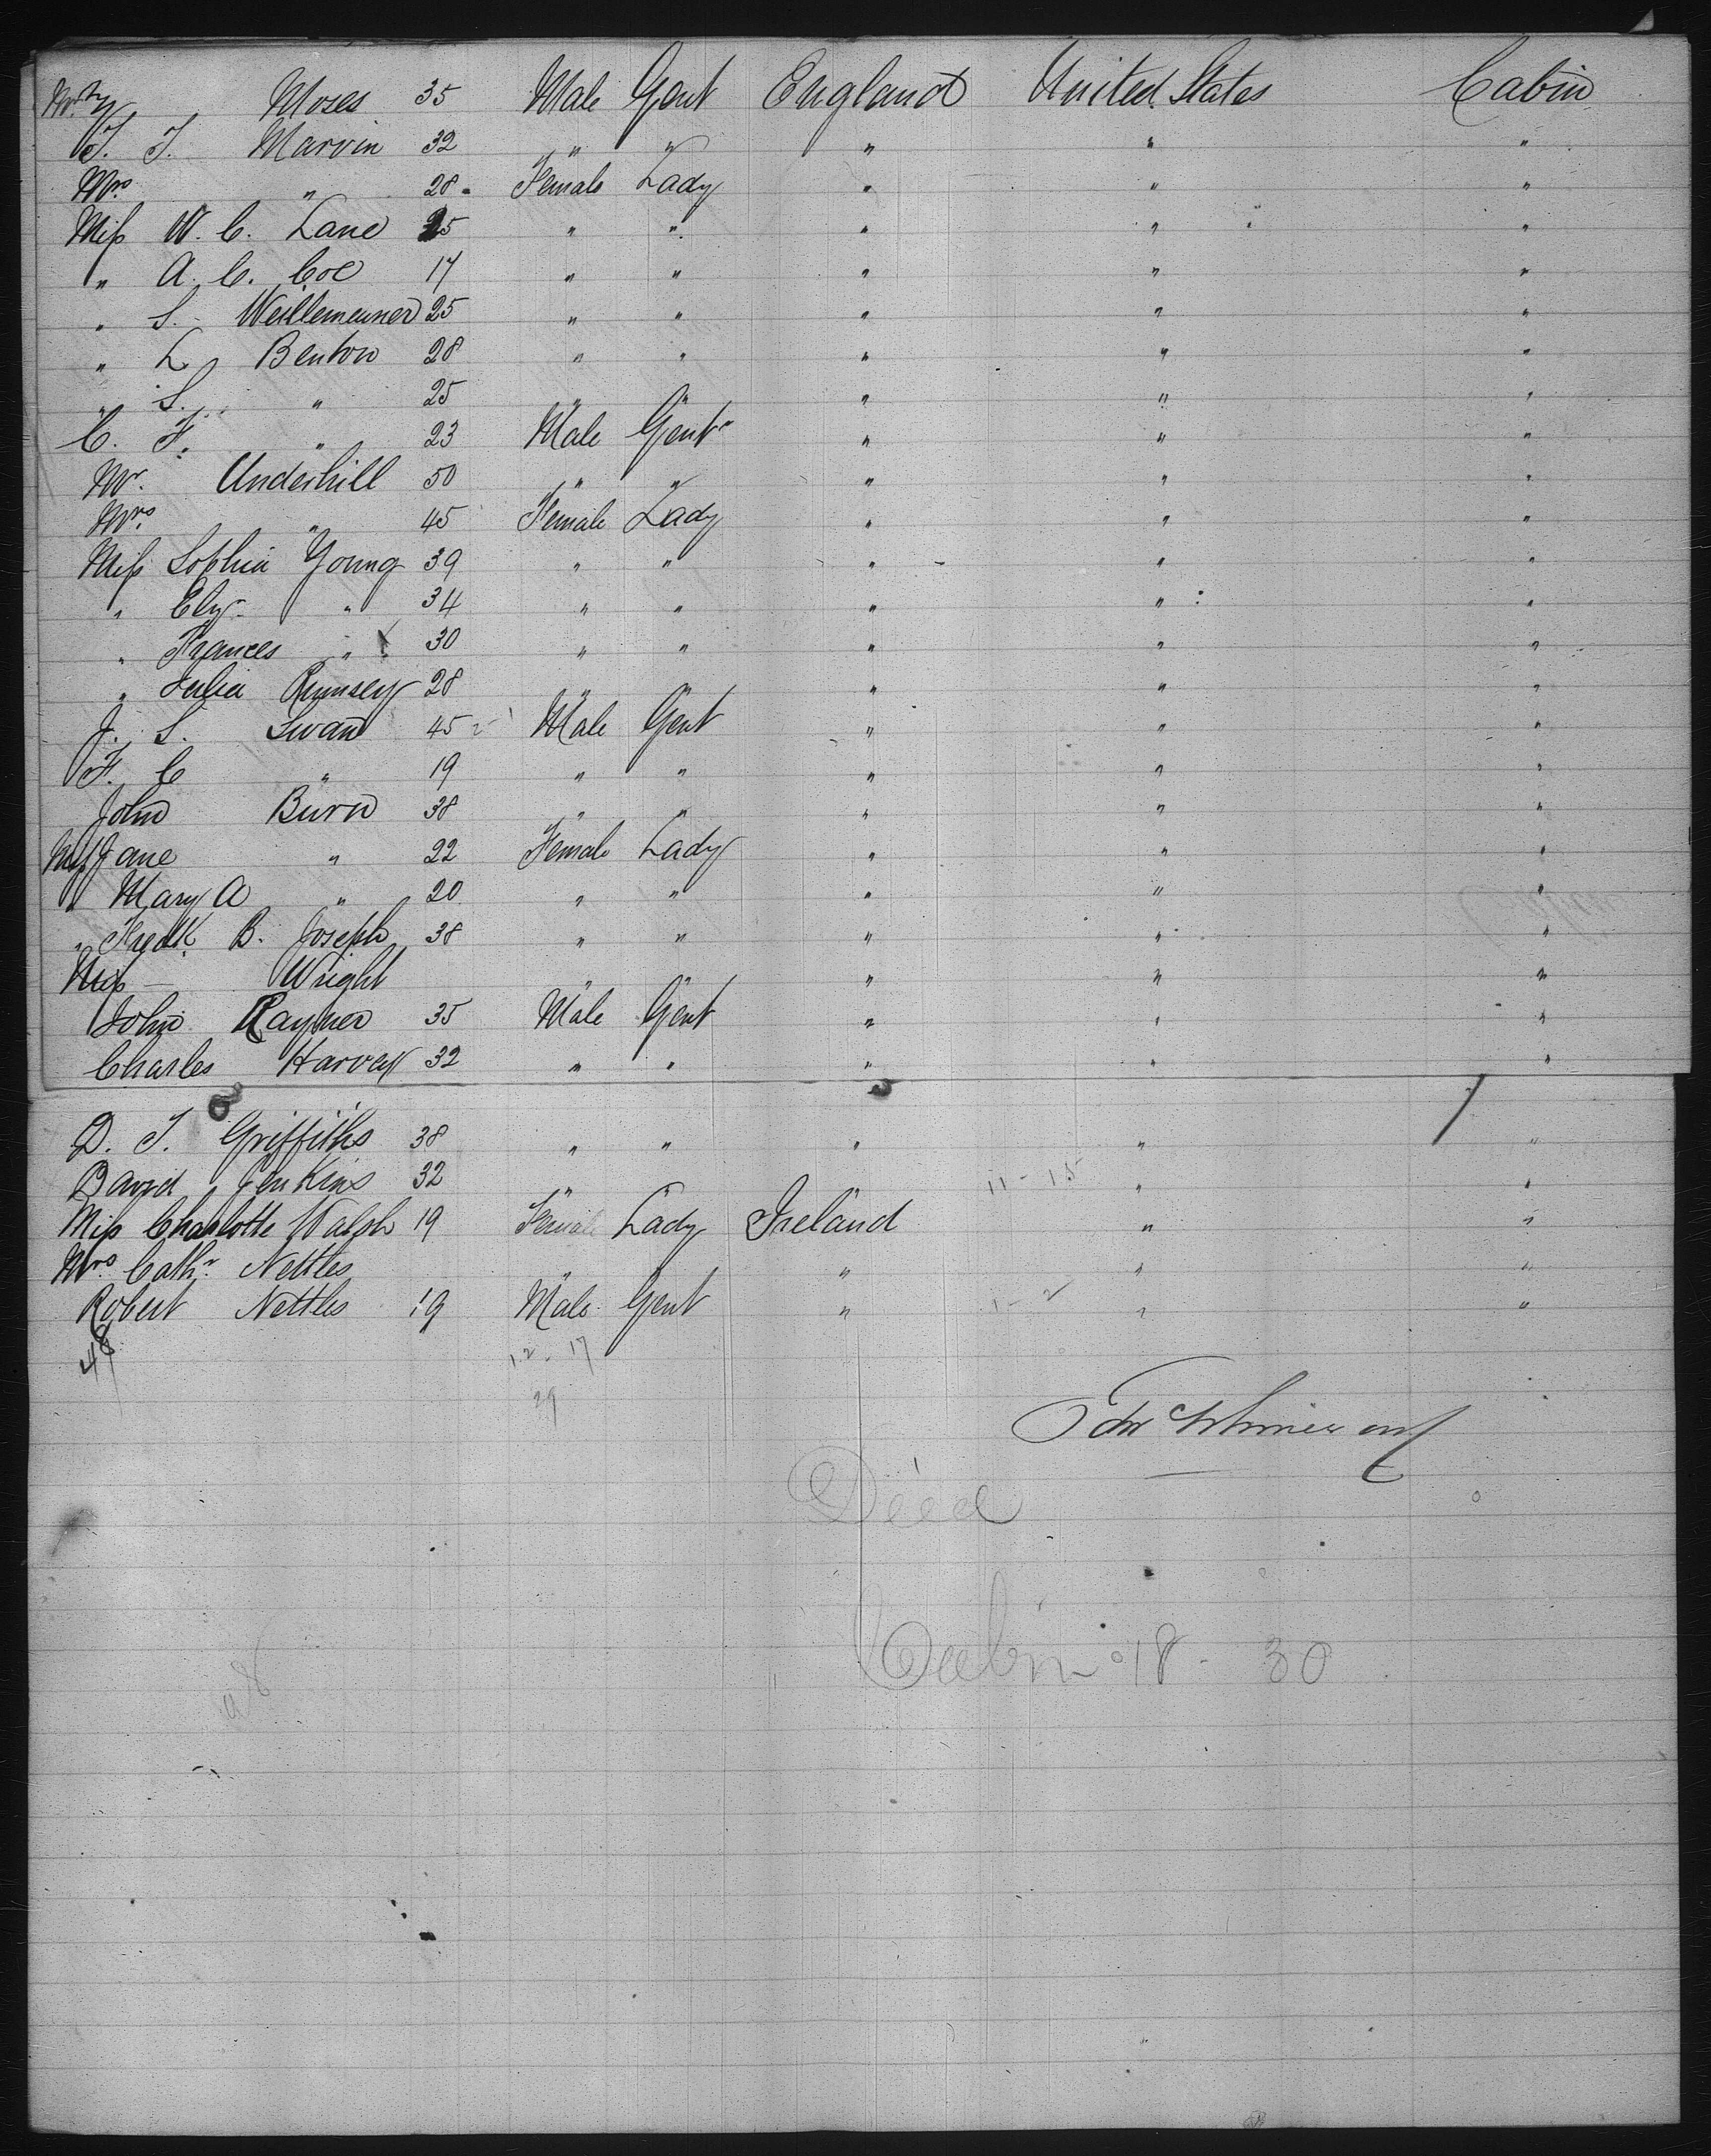 Mr. Moses 35 Male Gent England United States Cabin
T. T. Marvin 32 " " " " "
Mrs " 28 Female Lady " " "
Miss W. C. Lane 25 " " " " "
" A. C. Coe 17 " " " " "
" S. 25 " " " " "
" L Benton 28 " " " " "
" S. " 25 " " " " "
C. F. " 23 Male Gent " " "
Mr. Underhill 50 " " " " "
Mrs " 45 Female Lady " " "
Miss Sophia Young 39 " " " " "
" Eliz " 34 " " " " "
" Frances " 30 " " " " "
" Julia Rumsey 28 " " " " "
J. S. Swan 45 Male Gent " " "
F. C " 19 " " " " "
John Burn 38 " " " " "
Miss Jane " 22 Female Lady " " "
" Mary A " 20 " " " " "
" Fredk. B. Joseph 38 " " " " "
Miss — Wright " " " " "
John Rayner 35 Male Gent " " "
Charles Harvey 32 " " " " "
D. T. Griffiths 38 " " " " "
David Jenkins 32 " " " 11-15 " "
Miss Charlotte Walsh 19 Female Lady Ireland " "
Mrs Cathr. Nettles " " " " "
Robert Nettles 19 Male Gent " 1-2 " "
48 12-17
29
Died
Cabin 18 - 30